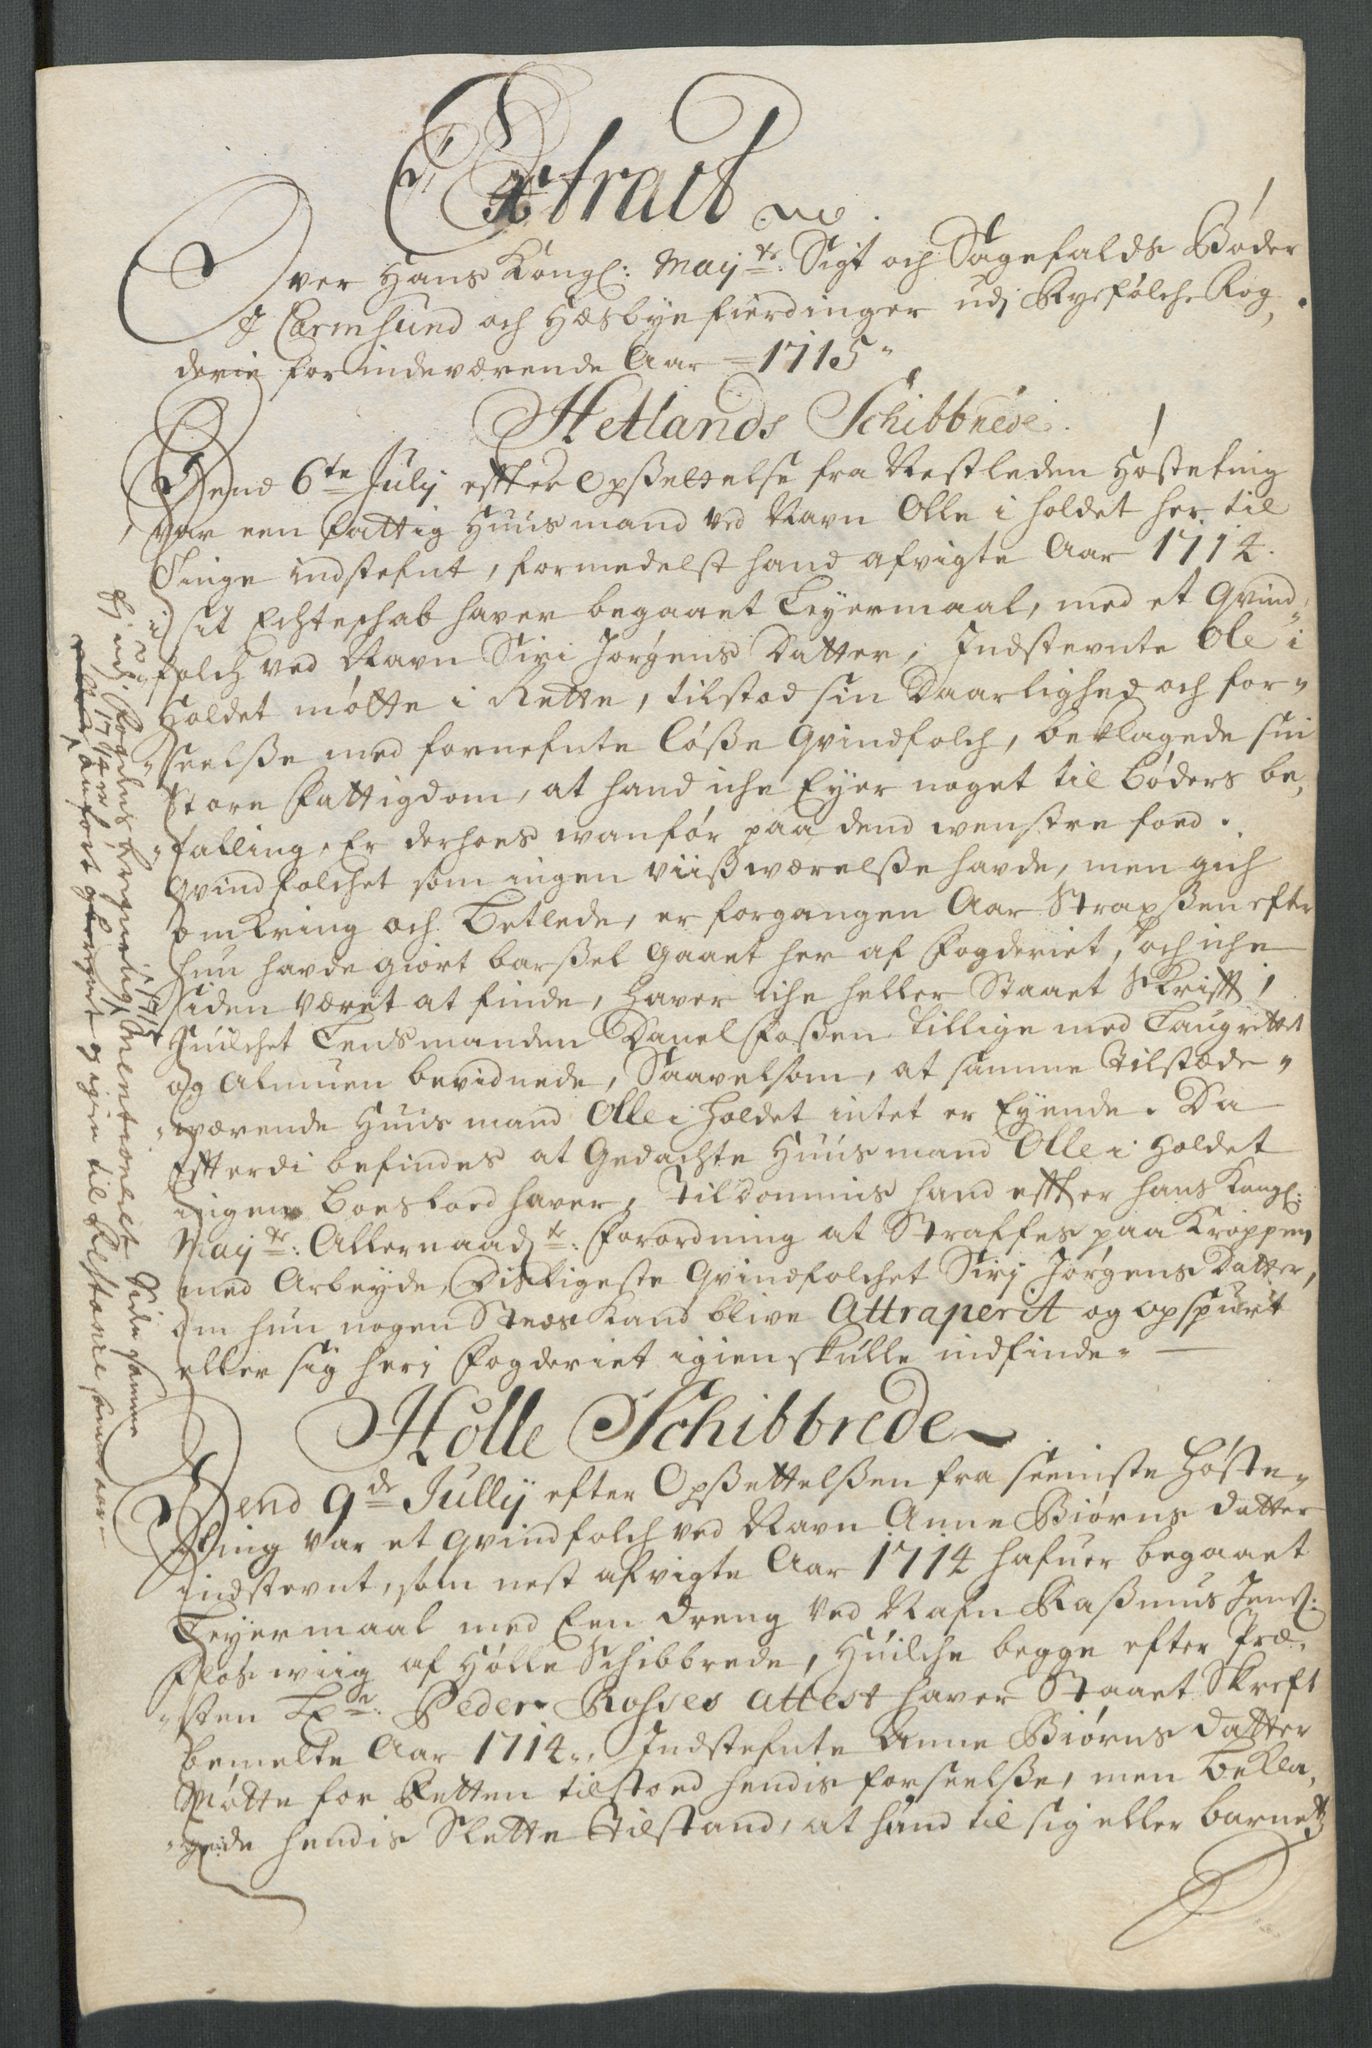 Extract
Over Hans Kongl: Mayts: Sigt och Sagefalds Bøder
I Carmsund och Hæsbye fierdinger udj Ryefølche Fog,,
derie for indeværende Aar 1715
Hetlands Schibbrede.
Dend 6te July effter Opsettelse fra Nestleden Høsteting
var een fattig Huusmand ved Navn Olle i holdet her til
Tinge indstefnt, formedelst hand afvigte Aar 1714
i sit Echteschab haver begaaet Leyermaal, med et Qvind-
folch ved Navn Siri Jørgens Datter, Indstevnte Ole i
Holdet møtte i Rette, tilstod sin Daarlighed och for-
seelsse med fornefnte løsse Qvindfolch, beklagede sin
store Fattigdom, at hand iche Eyer noget til bøders be,,
talling, Er derhoes vanfør paa dend venstre foed.
Qvindfolchet som ingen viiss værelsse havde, men gich
omkring och betlede, er forgangen Aar Strax ssen efter
hun havde giort barssel gaaet her af Fogderiet, och iche
siden været at finde, haver iche heller Staaet Skrifft,
Huilchet Lensmanden Danel Fossen tillige med Laugrettet
og Almuen bevidnede, Saavelsom, at samme tilstæde-
værende Huusmand Olle i holdet intet er Eyende. Da
Efterdi befindes at Gedachte Huusmand Olle i Holdet
ingen Boeslod haver, Tildømmis hand effter hans Kongl:
Mayts: Allernaadte: Forordning at Straffes paa Kroppen
med Arbeyde, Disligeste Qvindfolchet Sirj Jørgens Datter,
om hun nogen Steds kand blive Attraperit og opspurt
eller sig herj Fogderiet igien skulle indfinde.
Hølle Schibbrede
Dend 9de Jullij efter Opssettelssen fra seeniste Høste-
ting var et qvindfolch ved Navn Anne Biørns datter
indstevnt, som nest afvigte Aar 1714 hafuer begaaet
Leyermaal med Een dreng ved Nafn Rassmus Jenss:
Fløsviig af Hølle Schibbrede, Huilche begge efter Præ-
sten Hr: Peder Rosses attest haver Staaet Skrefft
bemelte Aar 1714. Indstefnte Anne Biørns datter
Møtte for Retten tilstoed hendis forseelsse, men bekla,,
gede hendis Slette tilstand, at hand til sig eller barnet